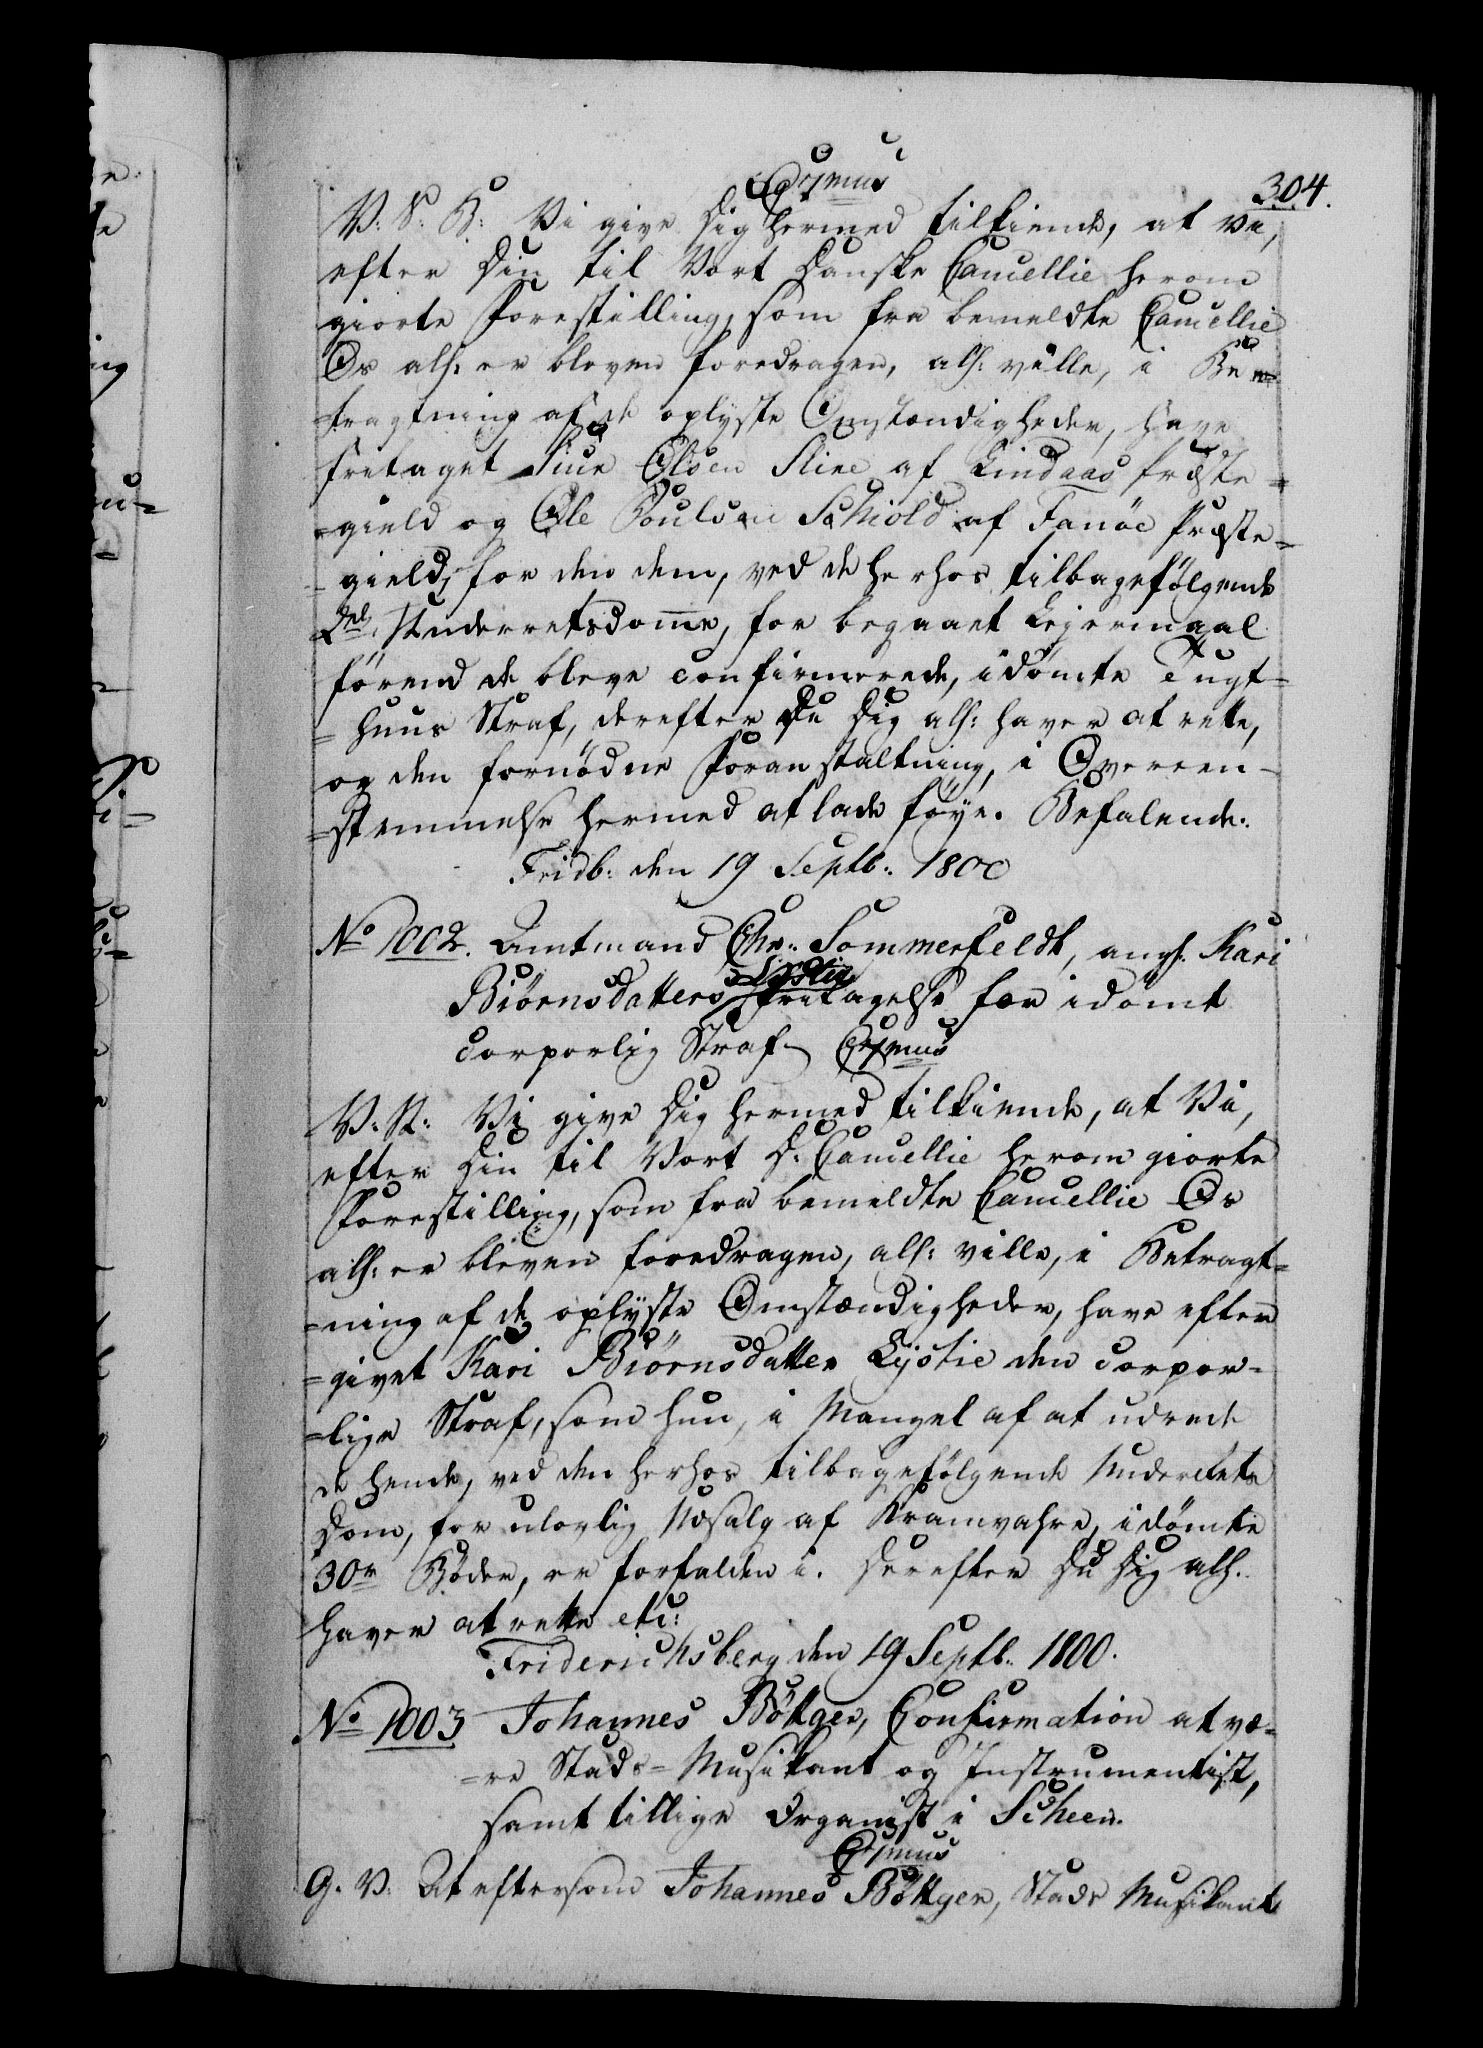 304.
C7mus
V: S: K: Vi give Dig hermed tilkiende, at Vi,
efter Din til Vort Danske Cancellie herom
giorte Forestilling, som fra bemeldte Cancellie
Os alh: er bleven foredragen, alh: ville, i Be-
=tragtning af de oplyste Omstændigheder, have
fritaget Siur Olsen Sline af Lindaas Præste=
=gield og Ole Poulsen Schiold af Fanöe Præste=
=gield, for den dem, ved de herhos tilbagefölgende
2de Underretsdomme, for begaaet Lejermaal
förend de bleve confirmerede, idömte Tugt=
=huus Straf, derefter Du Dig alh: haver at rette,
og den fornödne Foranstaltning, i Overeen-
=stemmelse hermed at lade föye. Befalende.
Fridb: den 19 Septb: 1800
No 1002. Amtmand Chr: Sommerfeldt, angl. Kari
Lystie
Biörnsdatters fritagelse for idömt
corporlig Straf. C7mus
V: S: Vi give Dig hermed tilkiende, at Vi,
efter Din til Vort D: Cancellie herom giorte
Forestilling, som fra bemeldte Cancellie Os
alh: er bleven foredragen, alh: ville, i Betragt=
=ning af de oplyste Omstændigheder, have efter
=givet Kari Biörnsdatter Lystie den corpor=
=lige Straf, som hun, i Mangel af at udrede
de hende, ved den herhos tilbagefölgende Underrets
Dom, for ulovlig Udsalg af Kramvahre, idömte
30r Böder, er forfalden i. Derefter Du Dig alh.
haver at rette etc:
Friderichsberg den 19 Septb. 1800.
No 1003 Johannes Böttger, Confirmation at væ=
=re Stads=Musikant og Instrumentist,
samt tillige Organist i Scheen.
C7mus
G. V. At eftersom Johannes Böttger, Stads Musikant